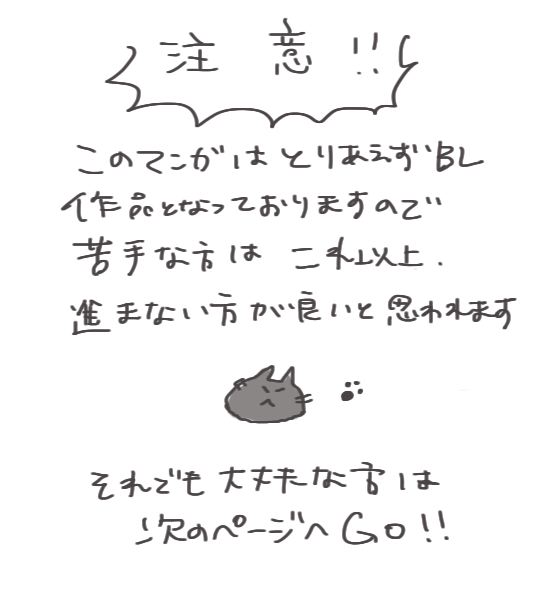 注意!!
このマンガはとりあえずBL
作品となっておりますので
苦手な方は これ以上.
進まない方が良いと思われます
それでも大丈夫な方は
次のページへGO!!